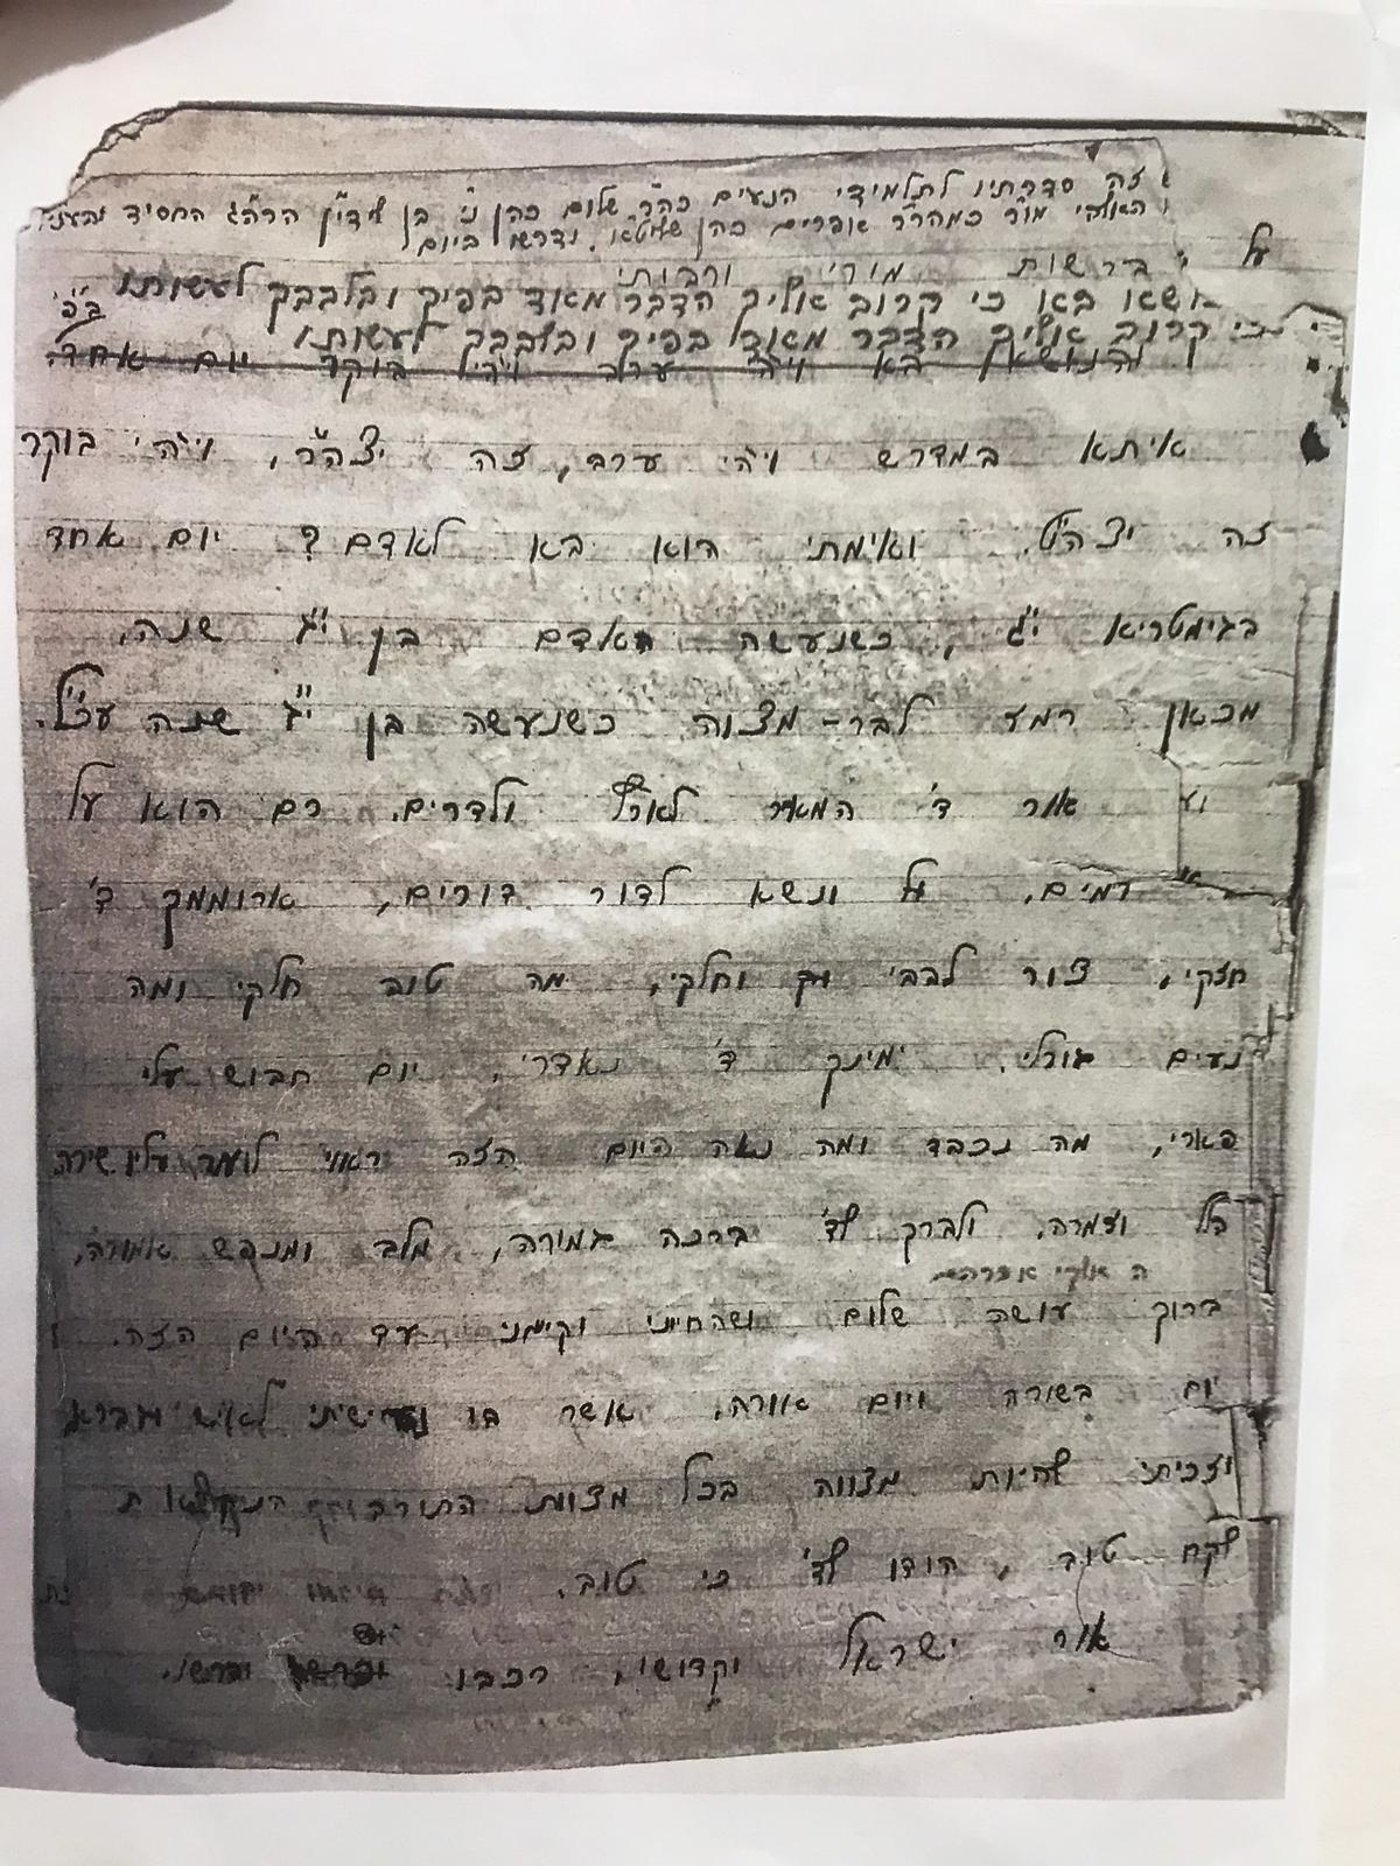 זה סדרתיו לתלמידי הנעים כה"ר שלום כהן נ"י בן לידי"ן הרה"ג החסיד והעניו
האלקי מו"ר כמהר"ר אפרים כהן שליט"א. נדרש ביום
על ברשות מורי ורבותי
נושאו באו כי קרוב אליך הדבר מאוד בפיך ובלבבך לעשותו
כי קרוב אליך הדבר מאוד בפיך ובלבבך לעשותו
והנושא בא ויהי ערב ויהי בוקר יום אחד.
איתא במדרש ויהי ערב, זה יצה"ר, ויהי בוקר
זה יצה"ט. ואימתי הוא בא לאדם? יום אחד
בגימטריא י"ג, כשנעשה האדם בן י"ג שנה.
מכאן רמז לבר-מצוה כשנעשה בן י"ג שנה עכ"ל.
אור ד' המאיר לארץ ולדרים. רם הוא על
רמים. על ונשא לדור דורים, ארוממך ד'
חזקי, צור לבבי וחלקי, מה טוב חלקי ומה
נעים גורלי. ימינך ד' נאדרי, יום חבוש עלי
פארי, מה נכבד ומה נאה היום הזה ראוי לומר עליו שירה
הלל וזמרה. ולברך לד' ברכה גמורה, מלב ומנפש אמורה,
ה אלקי אברהם
ברוך עושה שלום ושהחייני וקיימני עד היום הזה.
יום בשורה ויום אורה. אשר בו לאיש
וזכיתי להיות מצווה בכל מצות
לקח טוב, הודו לד' כי טוב.
אור ישראל וקדושו, רכבו ופרשו.